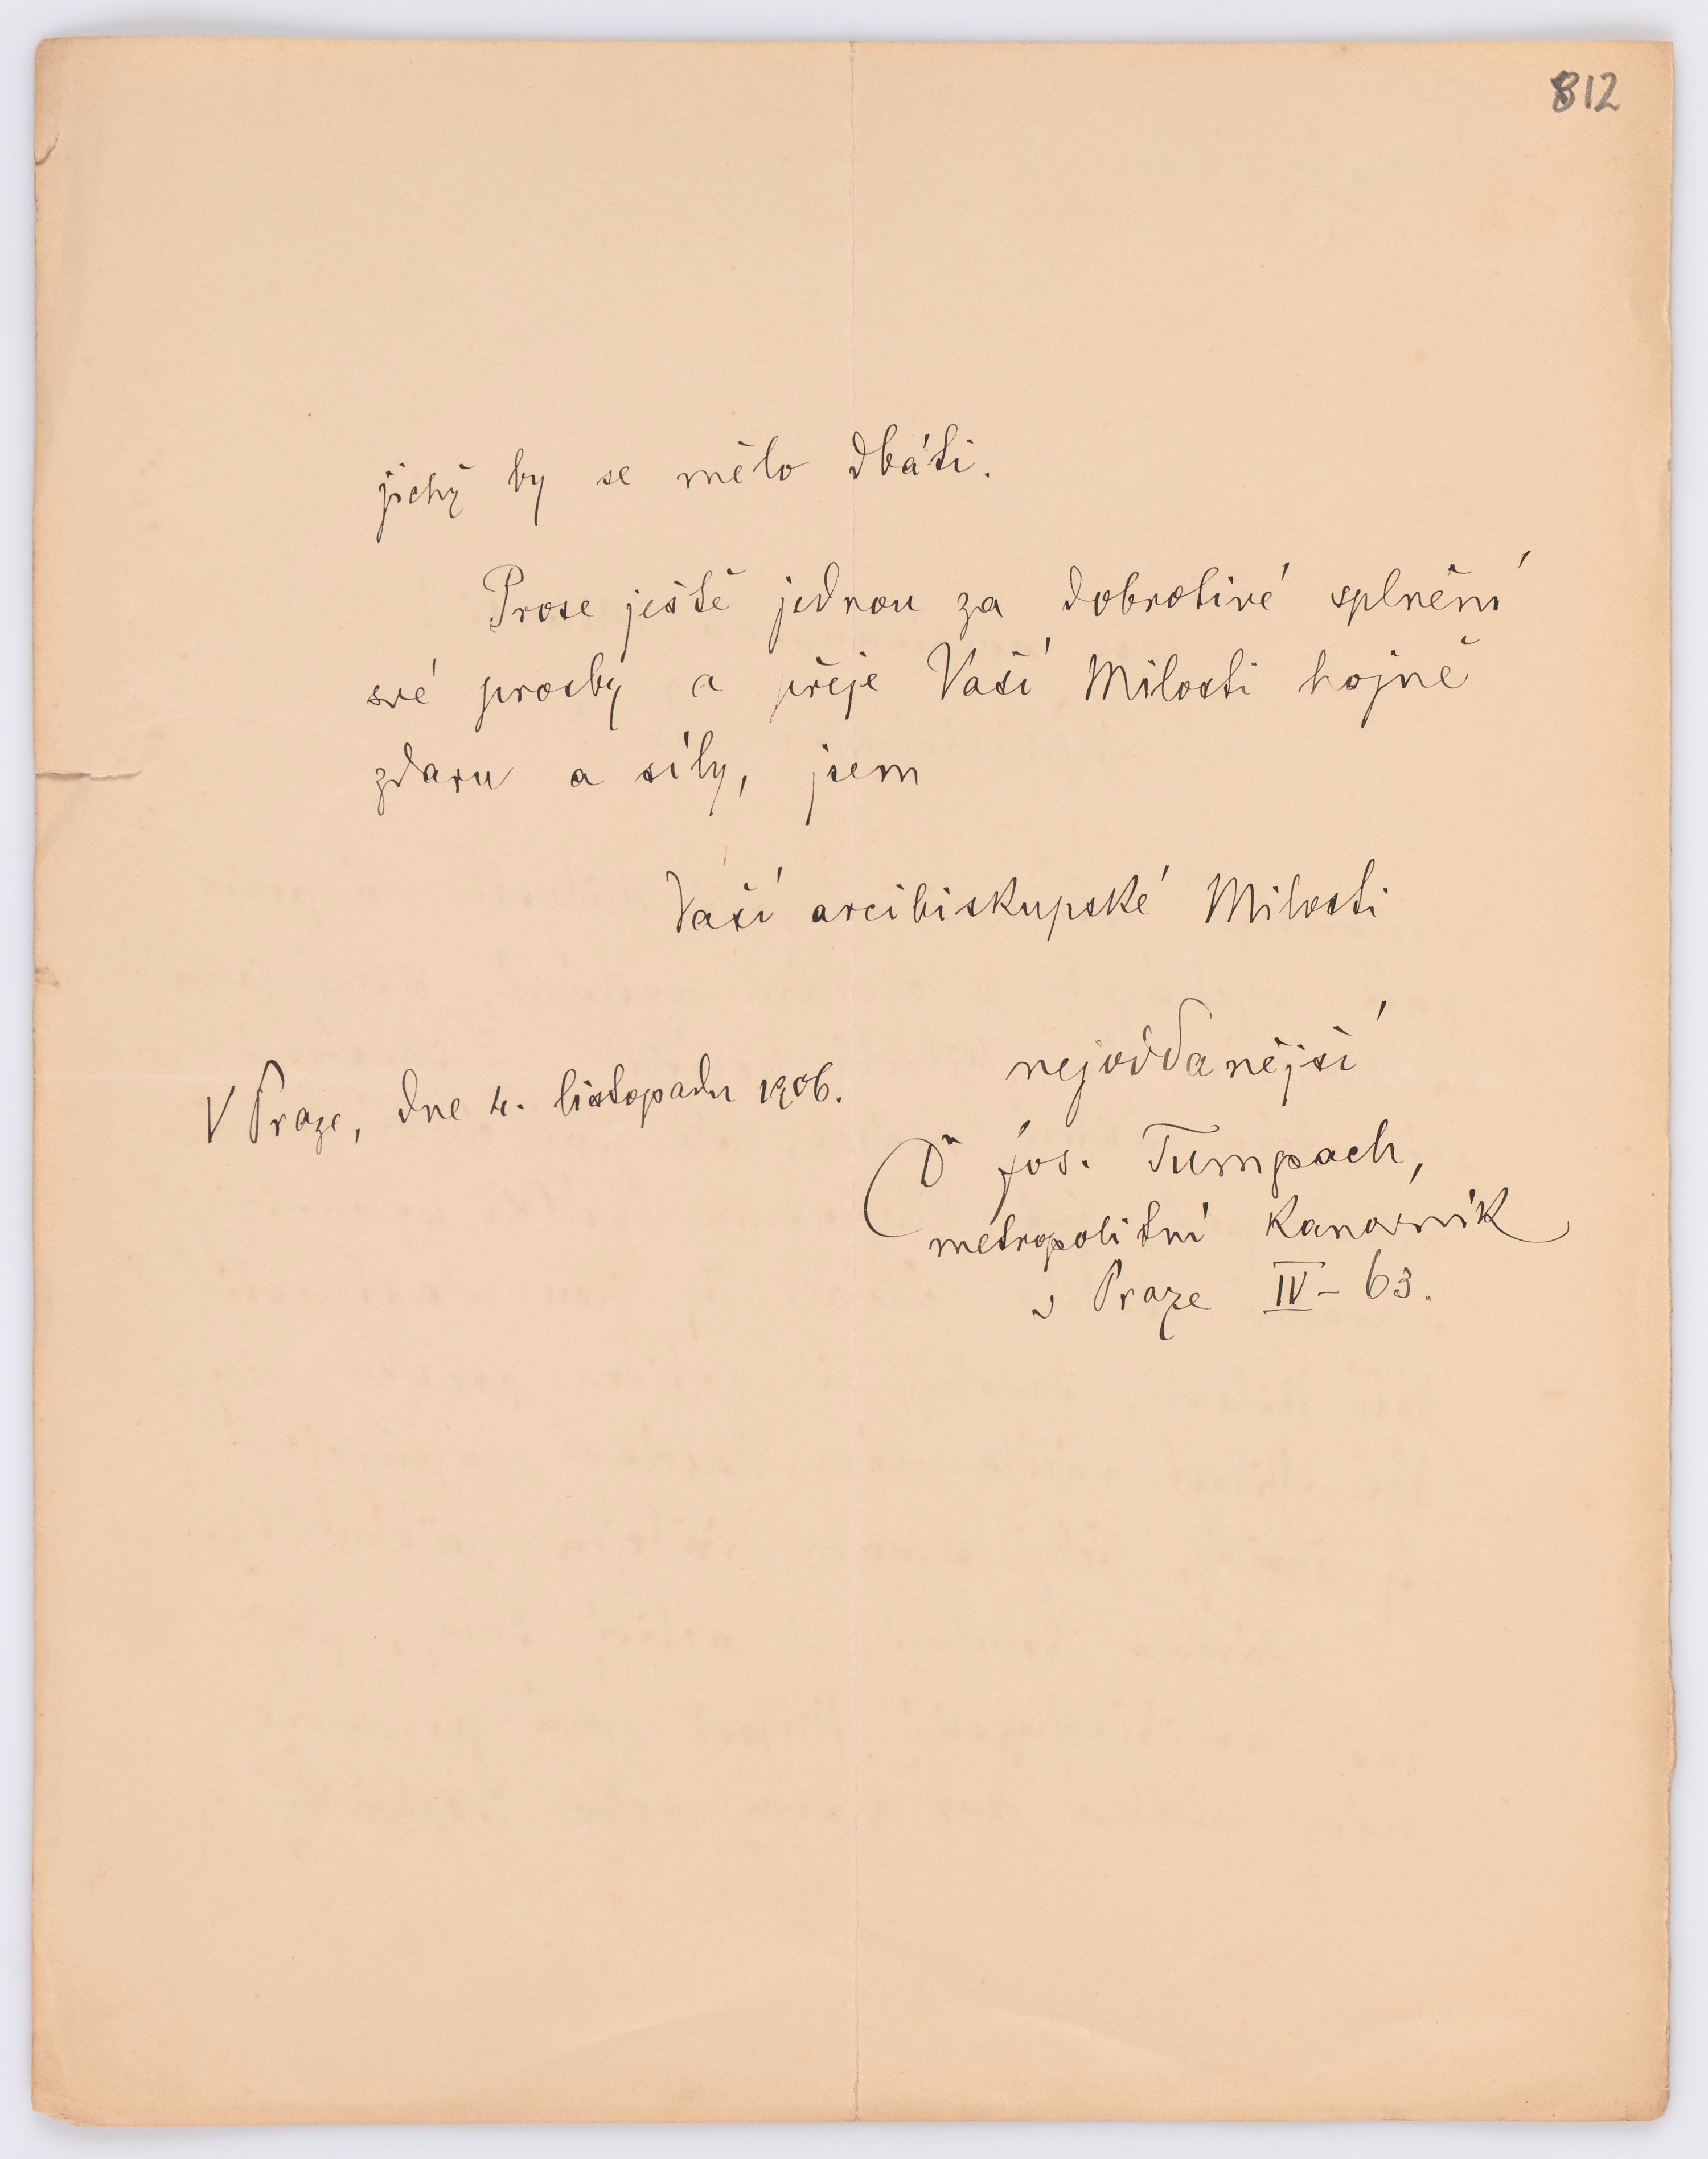 812
jichž by se mělo dbáti.
Prose ještě jednou za dobrotivé splnění
své prosby a přeje Vaší Milosti hojně
zdaru a síly, jsem
Vaší arcibiskupské Milosti
nejoddanější
V Praze, dne 4. listopadu 1906.
Dr Jos. Tumpach,
metropolitní kanovník
v Praze IV - 63.